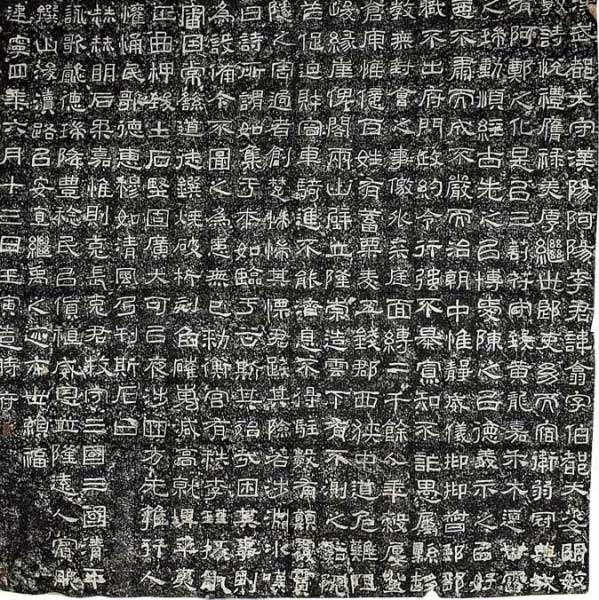 武都太守漢陽阿陽李君諱翕字伯都天姿明敏
敦詩悅禮膺祿美厚繼世郎吏幼而宿衛弱冠典城
有阿鄭之化是以三剖符守致黃龍嘉禾木連甘露
之瑞動順經古先之以博愛陳之以德義示之以好
惡不肅而成不嚴而治朝中惟靜威儀抑抑督郵部
職不出府門政約令行強不暴寡知不詐愚屬縣趨
教無對會之事儌外來庭面縛二千餘人年穀屢登
倉庾惟億百姓有蓄粟麥五錢郡西狹中道危難阻
峻緣崖俾閣兩山壁立隆崇造雲下有不測之谿阨
笮促迫財容車騎進不能濟息不得駐數有顛覆霣
隧之害過者創楚惴惴其慄君踐其險若涉淵冰歎
曰詩所謂如集于木如臨于谷斯其殆哉困其事則
為設備今不圖之為患無已敕衡官有秩李瑾掾仇
審因常繇道徒鐉燒破析刻臽磪嵬減高就埤平夷
正曲柙致土石堅固廣大可以夜涉四方无雍行人
懽悀民歌德惠穆如清風乃刊斯石曰
赫赫明后柔嘉惟則克長克君牧守三國三國清平
詠歌懿德瑞降豐稔民以貨稙威恩並隆遠人賓服
鐉山浚瀆路以安直繼禹之迹亦世賴福
建寧四年六月十三日壬寅造時府